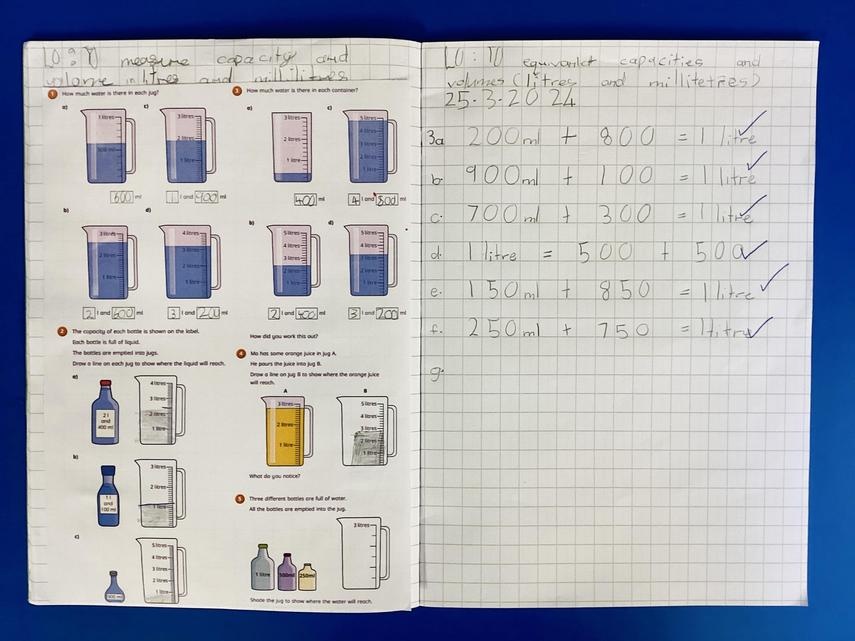 LO: TO measure capacity and
volume in litres and millilitres
1 How much water is there in each jug?
a)
1 litres
500 ml
500 ml
c)
3 litres
2 litres
1 litre
1 l and 900 ml
b)
3 litres
2 litres
1 litre
2 l and 600 ml
d)
4 litres
3 litres
2 litres
1 litre
3 l and 200 ml
2 The capacity of each bottle is shown on the label.
Each bottle is full of liquid.
The bottles are emptied into jugs.
Draw a line on each jug to show where the liquid will reach.
a)
2 l
and
400 ml
4 litres
3 litres
2 litres
1 litre
b)
1 l
and
100 ml
3 litres
2 litres
1 litre
c)
5 litres
4 litres
3 litres
2 litres
1 litre
3 How much water is there in each container?
a)
3 litres
2 litres
1 litre
400 ml
c)
5 litres
4 litres
3 litres
2 litres
1 litre
4 l and 800 ml
b)
5 litres
4 litres
3 litres
2 litres
1 litre
2 l and 400 ml
d)
5 litres
4 litres
3 litres
2 litres
1 litre
3 l and 200 ml
How did you work this out?
4 Mo has some orange juice in jug A.
He pours the juice into jug B.
Draw a line on jug B to show where the orange juice
will reach.
A
3 litres
2 litres
1 litre
B
5 litres
4 litres
3 litres
2 litres
1 litre
What do you notice?
5 Three different bottles are full of water.
All the bottles are emptied into the jug.
1 litre
500ml
250ml
3 litres
Shade the jug to show where the water will reach.
LO: TO equivanlct capacities and
volumes (litres and millitetres)
25.3.2024
3a 200ml + 800 = 1 litre
b. 900ml + 100 = 1 litre
c. 700ml + 300 = 1 litre
d. 1 litre = 500 + 500
e. 150ml + 850 = 1 litre
f. 250ml + 750 = 1 litre
g.